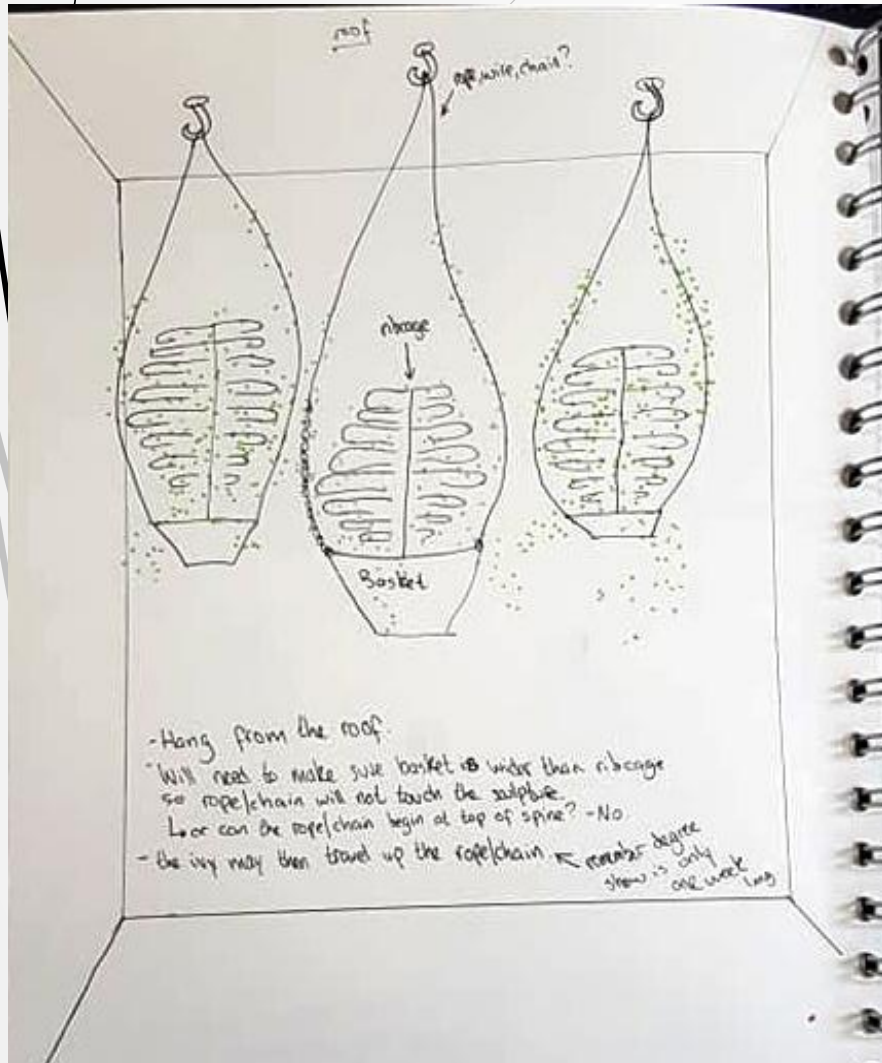 roof
rope, wire, chain?
ribcage
Basket
- Hang from the roof.
- Will need to make sure basket is wider than ribcage
so rope/chain will not touch the sculpture.
↳ or can the rope/chain begin at top of spine? - No
- the ivy may then travel up the rope/chain ← remember degree
show is only
one week
long